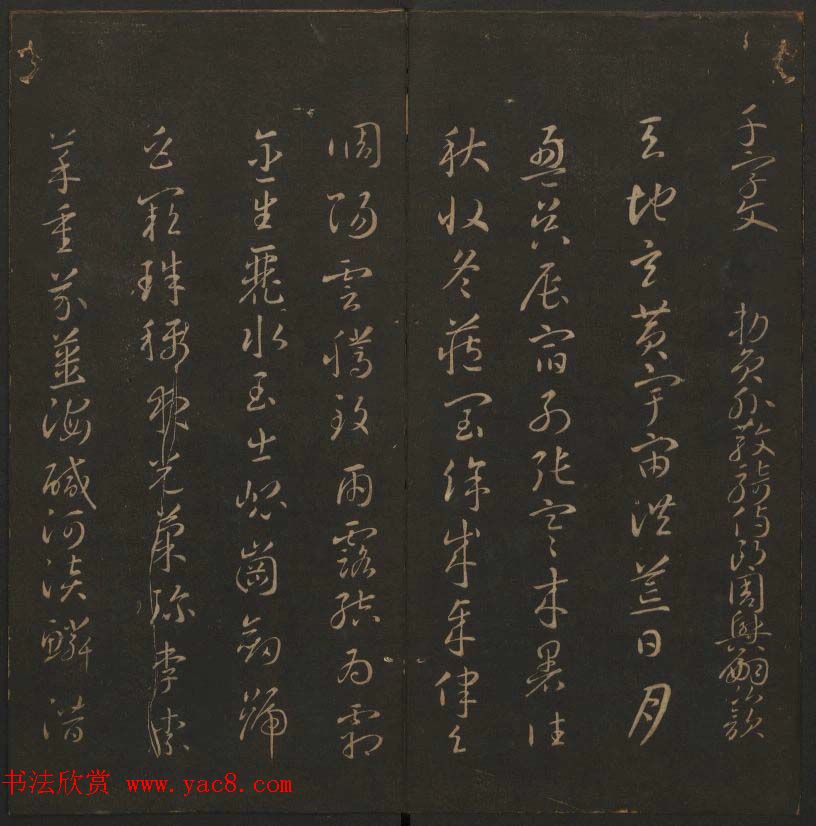 千字文 勑員外散騎侍郎周興嗣次韻
天地玄黃宇宙洪荒日月
盈昃辰宿列張寒來暑往
秋收冬藏閏餘成歲律呂
調陽雲騰致雨露結為霜
金生麗水玉出崑崗劍號
巨闕珠稱夜光菓珍李柰
菜重芥薑海鹹河淡鱗潛
书法欣赏 www.yac8.com